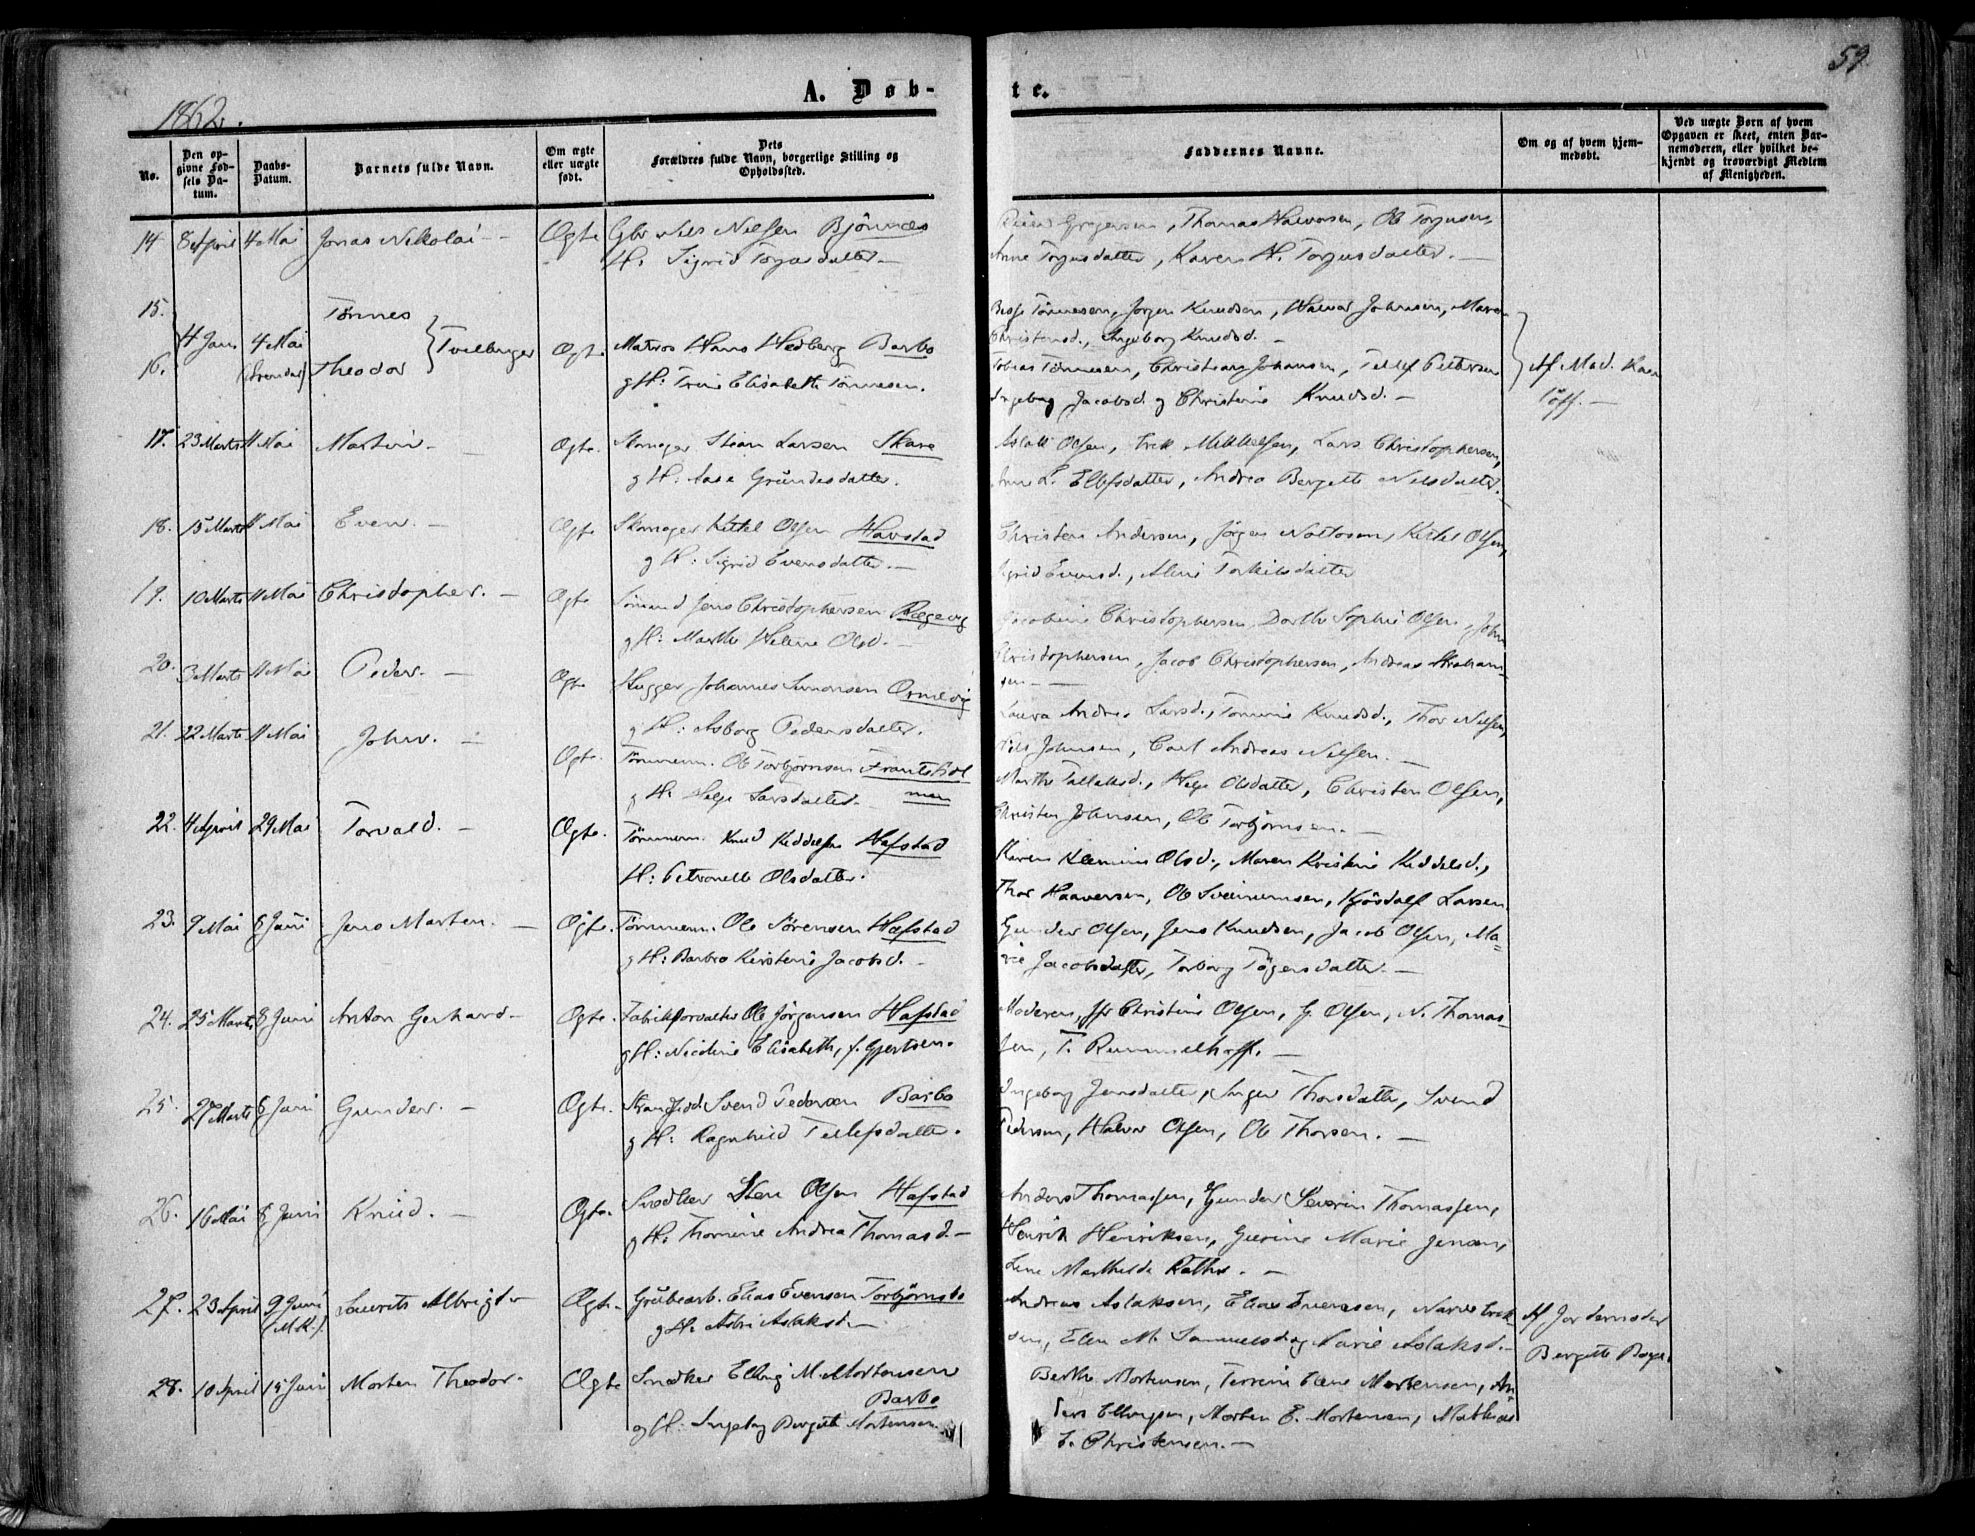 59.
1862.
A. Døb-
te.
No.
Den op-
givne Fød-
sels Da-
tum.
Daabs-
Datum.
Barnets fulde Navn.
Om ægte
eller uægte
født.
Dets
Forældres fulde Navn, borgerlige Stilling og
Opholdssted.
Faddernes Navne.
Om og af hvem hjem-
medøbt.
Ved uægte Børn af hvem
Opgaven er skeet, enten Bar-
nemoderen, eller hvilket be-
kjendt og troværdigt Medlem
af Menigheden.
14. 8 April 4 Mai Jonas Nikolai Ægte Gbr Nils Nilsen Bjönnæs
H: Sigrid Torjusdatter
Gregersen, Thomas Halvorsen, Ole Torjusen,
Anne Torjusdatter, Karen H. Torjusdatter.
15. Tönnes
4 Jan 4 Mai Tvillinger Ægte. Matros Hans Hedberg Barbo
16. (Arendal) Theodor
og H: Trine Elisabeth Tönnesen.
Tönnesen, Jörgen Knudsen, Halvor Johnsen, Maren
Christensd., Ingeborg Knudsd.
Tobias Tönnesen, Christian Johansen, Tellef Pettersen
Ingeborg Jacobsd. og Christine Knudsd.
Af Mad. Kam
17. 23 Marts 11 Mai Martin. Ægte. Skomager Stean Larsen Skare
og H: Aase Gründesdatter.
Aslak Olsen, Erik Mikkelsen, Lars Christophersen,
Anne L. Ellefsdatter, Andrea Bergitte Nilsdatter.
18. 15 Marts 11 Mai Even. Ægte Skomager Kittel Olsen Havstad
og H: Sigrid Evensdatter.
Christen Andersen, Jörgen Olsen,
Sigrid Evensd., Aline Torkildsdatter
19. 10 Marts 11 Mai Christopher. Ægte Sömand Jens Christophersen Rægevig
og H: Marthe Helene Olsd.
Jacobine Christophersen, Dorthe Sophie Olsen, John
Christophersen, Jacob Christophersen, Andreas Abraham-
sen
20. 3 Marts 11 Mai Peder. Ægte Hugger Johannes Simonsen Ornevig
og H: Asborg Pedersdatter.
Laura Andrea Larsd., Tomine Knudsd., Thor Nilsen,
Nils Johnsen, Carl Andreas Nilsen.
21. 22 Marts 11 Mai John. Ægte. Tömmerm. Ole Torbjörnsen Frantshol
men
og H: Helje Larsdatter.
Marthe Tallaksd., Helje Olsdatter, Christen Olsen,
Christen Johnsen, Ole Torbjörnsen.
22. 4 April 29 Mai Torvald. Ægte. Tömmerm. Knud Keddelsen Hafstad
H: Petronelle Olsdatter.
Karen Olsd., Maren Kristine Keddelsd.,
Thor Haaversen, Ole Sveinumsen, Larsen.
23. 9 Mai 8 Juni Jens Marten. Ægte. Tömmerm. Ole Sörensen Hafstad
og H: Barbro Kirstine Jacobsd.
Gunder Olsen, Jens Knudsen, Jacob Olsen, Ma-
rie Jacobsdatter, Torborg Tögersdatter.
24. 25 Marts 8 Juni Anton Gerhard. Ægte. Fabrikforvalter Ole Jörgensen Hafstad
og H: Nicoline Elisabeth, f. Gjertsen.
Moderen, Jfr Christine Olsen, G. Olsen, N. Thomas-
sen, T. Rummelhoff.
25. 27 Marts 8 Juni Gunder. Ægte. Svend Pedersen Barbo
og H: Ragnhild Tellefsdatter.
Ingeborg Jensdatter, Inger Thorsdatter, Svend
Pedersen, Halvor Olsen, Ole Thorsen.
26. 16 Mai 8 Juni Knud. Ægte. Snedker Sten Olsen Hafstad
og H: Thomine Andrea Thomasd.
Anders Thomassen, Gunder Severin Thomassen,
Henrik Henriksen, Gurine Marie Jensen,
Line Mathilde
27. 23 April 9 Juni Laurits Albrigt Ægte. Grübearb. Elias Evensen Torbjörnsbo
(M.K.). og H: Astri Aslaksd.
Andreas Aslaksen, Elias Evensen, Erik-
sen, Elen M. Sammelsd og Marie Aslaksd.
Af Jordemoder
Bergitte Boye.
28. 10 April 15 Juni Morten Theodor. Ægte Snedker Elling M. Mortensen
Barbo
og H: Ingeborg Bergitte Mortensen
Berthe Mortensen, Terrine Elene Mortensen, An-
ders Ellingsen, Morten E. Mortensen, Mathias
L. Christensen.